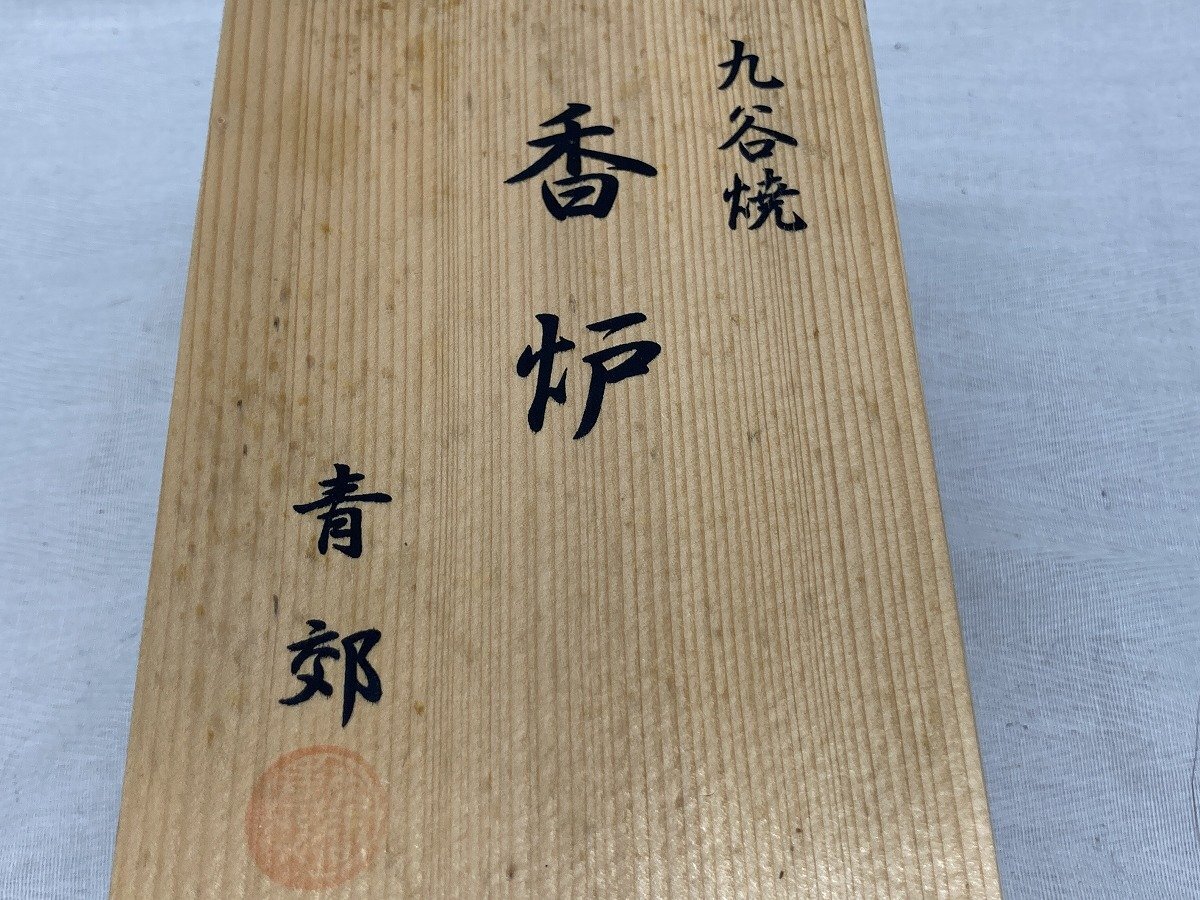 九谷焼
香炉
青郊